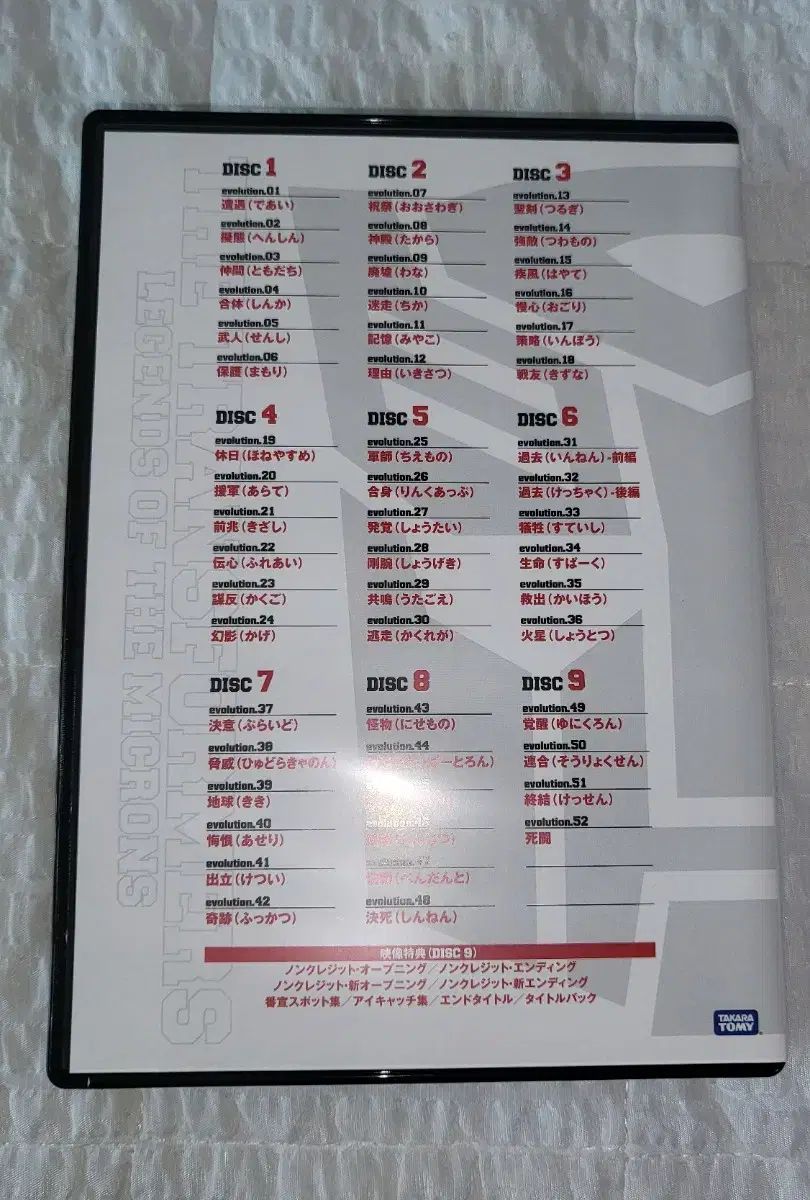 THE TRANSFORMERS
LEGENDS OF THE MICRONS
DISC 1
evolution.01
遭遇(であい)
evolution.02
擬態(へんしん)
evolution.03
仲間(ともだち)
evolution.04
合体(しんか)
evolution.05
武人(せんし)
evolution.06
保護(まもり)
DISC 2
evolution.07
祝祭(おおさわぎ)
evolution.08
神殿(たから)
evolution.09
廃墟(わな)
evolution.10
迷走(ちか)
evolution.11
記憶(みやこ)
evolution.12
理由(いきさつ)
DISC 3
evolution.13
聖剣(つるぎ)
evolution.14
強敵(つわもの)
evolution.15
疾風(はやて)
evolution.16
慢心(おごり)
evolution.17
策略(いんぼう)
evolution.18
戦友(きずな)
DISC 4
evolution.19
休日(ほねやすめ)
evolution.20
援軍(あらて)
evolution.21
前兆(きざし)
evolution.22
伝心(ふれあい)
evolution.23
謀反(かくご)
evolution.24
幻影(かげ)
DISC 5
evolution.25
軍師(ちえもの)
evolution.26
合身(りんくあっぷ)
evolution.27
発覚(しょうたい)
evolution.28
剛腕(しょうげき)
evolution.29
共鳴(うたごえ)
evolution.30
逃走(かくれが)
DISC 6
evolution.31
過去(いんねん)-前編
evolution.32
過去(けっちゃく)-後編
evolution.33
犠牲(すていし)
evolution.34
生命(すぱーく)
evolution.35
救出(かいほう)
evolution.36
火星(しょうとつ)
DISC 7
evolution.37
決意(ぷらいど)
evolution.38
脅威(ひゅどらきゃのん)
evolution.39
地球(きき)
evolution.40
悔恨(あせり)
evolution.41
出立(けつい)
evolution.42
奇跡(ふっかつ)
DISC 8
evolution.43
怪物(にせもの)
evolution.44
ーとろん)
(ぺんだんと)
evolution.48
決死(しんねん)
DISC 9
evolution.49
覚醒(ゆにくろん)
evolution.50
連合(そうりょくせん)
evolution.51
終結(けっせん)
evolution.52
死闘
映像特典(DISC 9)
ノンクレジット・オープニング／ノンクレジット・エンディング
ノンクレジット・新オープニング／ノンクレジット・新エンディング
番宣スポット集／アイキャッチ集／エンドタイトル／タイトルバック
TAKARA
TOMY